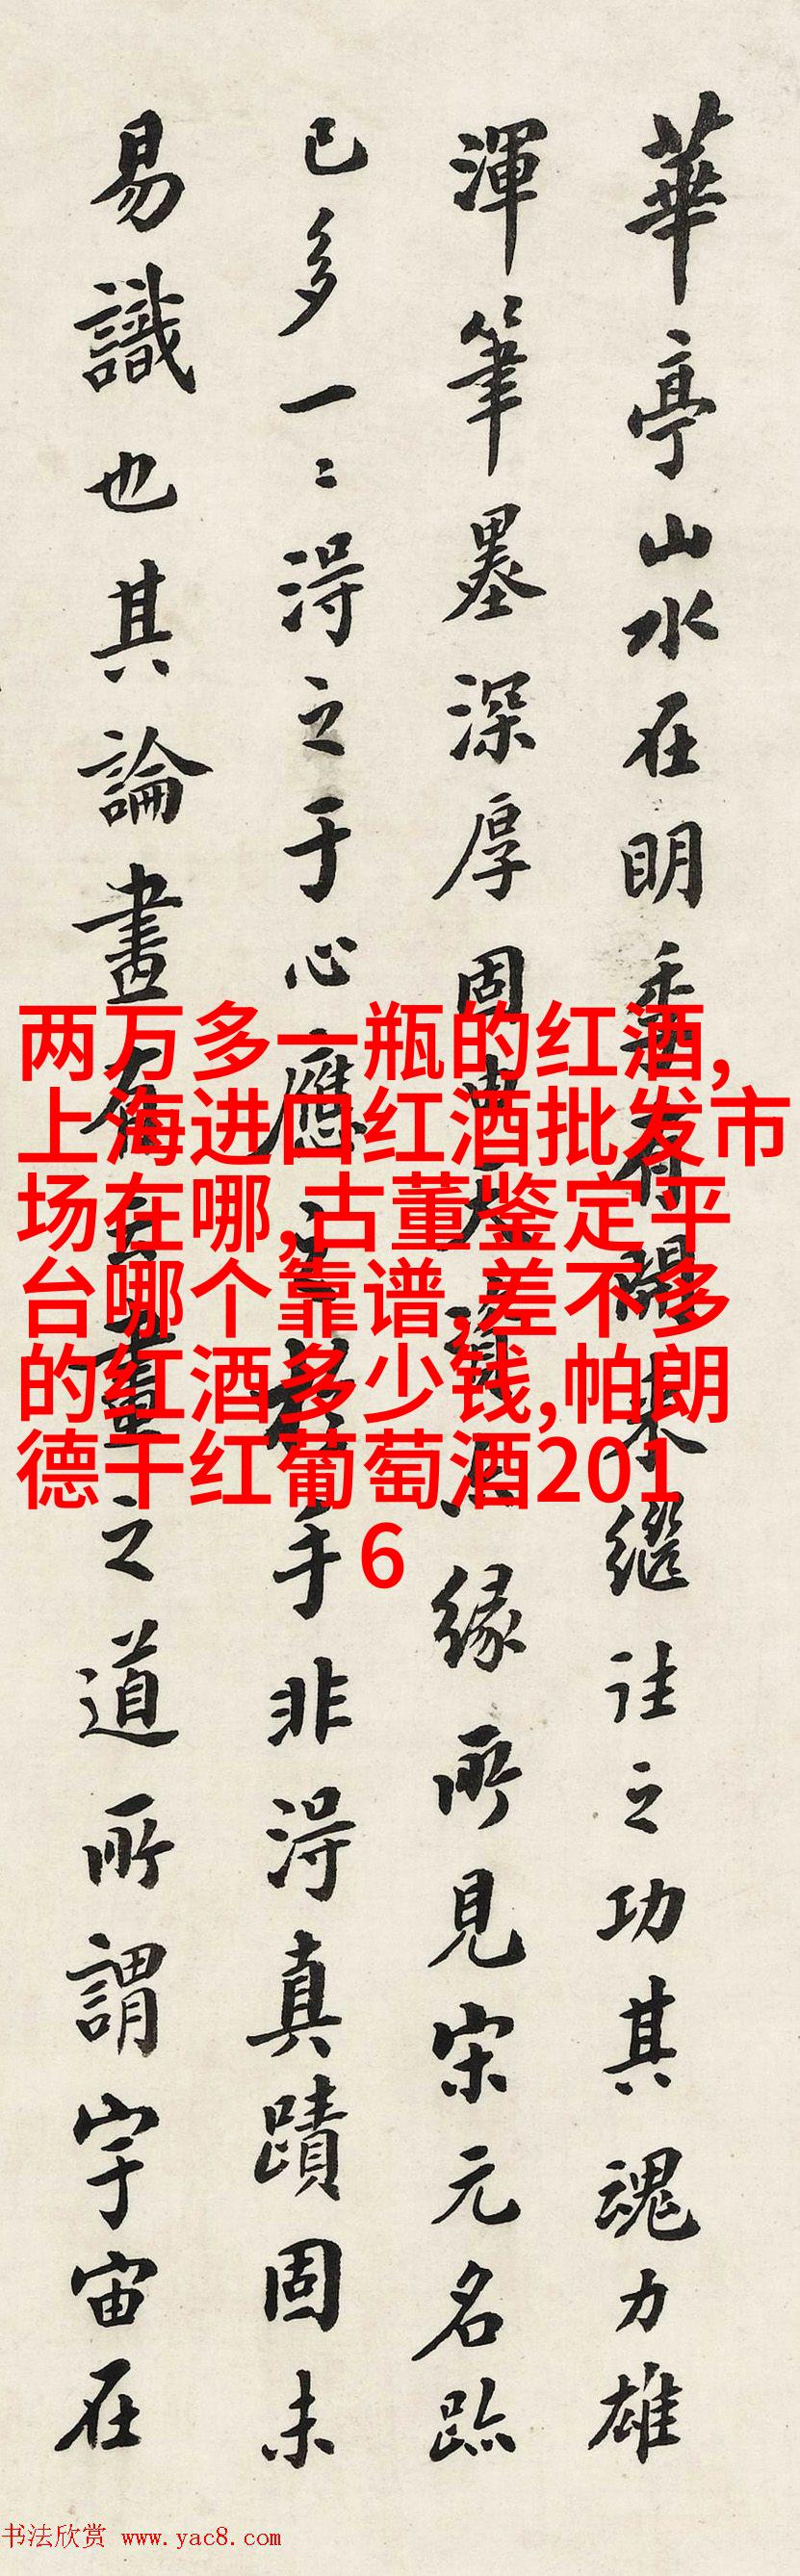 華亭山水在明季有開来继往之功其魂力雄
渾筆墨深厚固緣所見宋元名跡
已多一〻得之于心應之於手非得真蹟固未
易識也其論畫有云畫之道所謂宇宙在
两万多一瓶的红酒,
上海进口红酒批发市
场在哪,古董鉴定平
台哪个靠谱,差不多
的红酒多少钱,帕朗
德干红葡萄酒201
6
书法欣赏 www.yac8.com